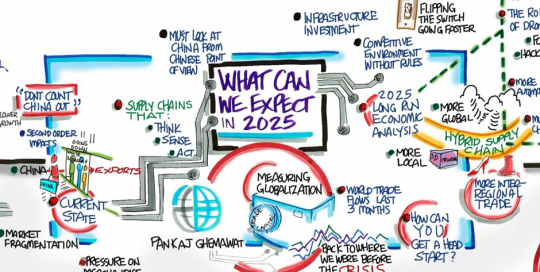 MUST LOOK AT
CHINA FROM
CHINESE POINT
OF VIEW
INFRASTRUCTURE
INVESTMENT
FLIPPING
THE SWITCH
GOING FASTER
THE RO
OF DRO
COMPETITIVE
ENVIRONMENT
WITHOUT RULES
FO
HACK
MORE
AUTOMA
"DON'T COUNT
CHINA OUT"
LOWER
GROWTH
SUPPLY CHAINS
THAT:
THINK
SENSE
ACT
WHAT CAN
WE EXPECT
IN 2025
2025
LONG RUN
ECONOMIC
ANALYSIS
MORE
GLOBAL
HYBRID SUPPLY
CHAIN
MORE
LOCAL
SECOND ORDER
IMPACTS
GOING
DOWN
CHINA
EXPORTS
CHINA
CURRENT
STATE
MARKET
FRAGMENTATION
PRESSURE ON
MEASURING
GLOBALIZATION
PANKAJ GHEMAWAT
WORLD TRADE
FLOWS LAST
3 MONTHS
BACK TO WHERE
WE WERE BEFORE
THE CRISIS
MORE INTER-
REGIONAL
TRADE
HOW CAN
YOU
GET A HEAD
START?